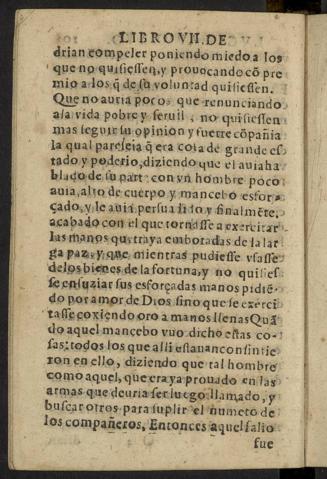 LIBRO VII. DE
drian compeler poniendo miedo a los
que no quisiessen, y prouocando cõ pre
mio a los q̃ de su voluntad quisiessen.
Que no auria pocos que renunciando
a sa vida pobre y seruil, no quisiessen
mas seguir su opinion y suerte cõpañia
la qual pareseia q̃ era cosa de grande es
tado y poderio, diziendo que el auia ha
blado de su part: con vn hombre poco
auia, alto de cuerpo y mancebo esfor-
çado, y le auia persuadido y finalmẽte,
acabado con el que tornasse a exercitar
las manos que traya embotadas de la lar
ga paz, y que mientras pudiesse vsasse
de los bienes de la fortuna, y no quisies
se ensuziar sus esforçadas manos pidiẽ-
do por amor de Dios sino que se exerci
tasse cogiendo oro a manos llenas Quã
do aquel mancebo vuo dicho estas co-
sas: todos los que alli estauan consintie
ron en ello, diziendo que tal hombre
como aquel, que era ya prouado en las
armas que deuria ser luego llamado, y
buscar otros para suplir el numero de
los compañeros, Entonces aquel salio
fue